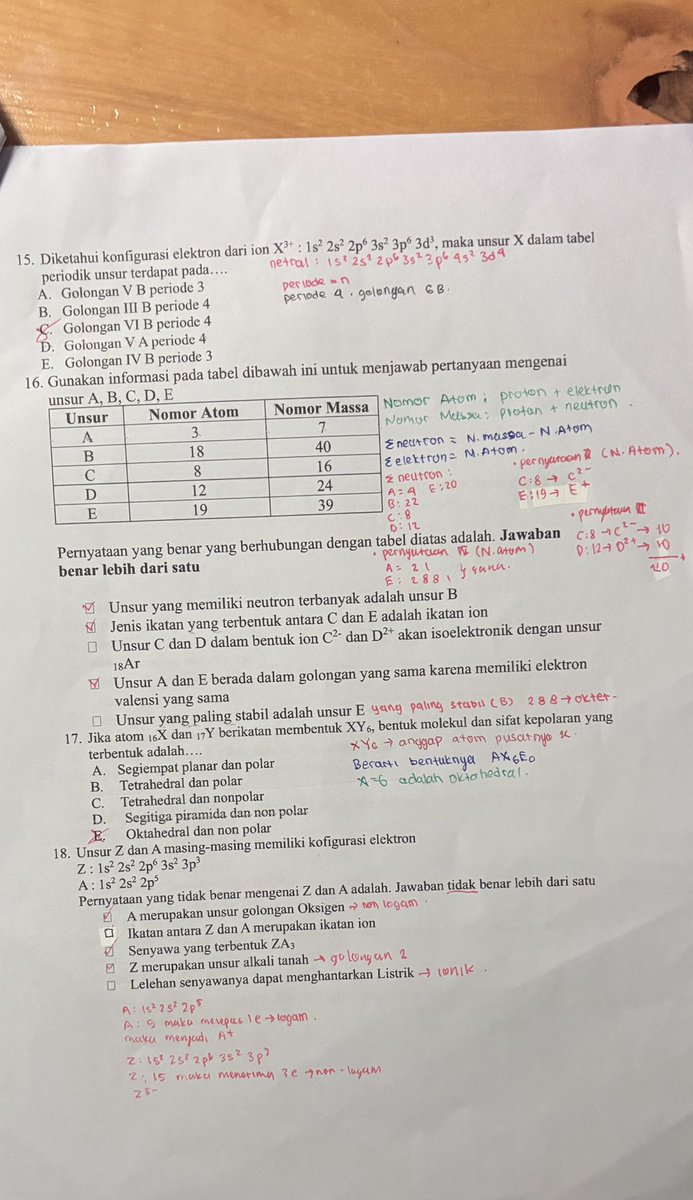 15. Diketahui konfigurasi elektron dari ion X³⁺ : 1s² 2s² 2p⁶ 3s² 3p⁶ 3d³, maka unsur X dalam tabel
periodik unsur terdapat pada….
netral : 1s² 2s² 2p⁶ 3s² 3p⁶ 4s² 3d⁴
A. Golongan V B periode 3
periode = n
B. Golongan III B periode 4
periode 4 . golongan 6B.
C. Golongan VI B periode 4
D. Golongan V A periode 4
E. Golongan IV B periode 3
16. Gunakan informasi pada tabel dibawah ini untuk menjawab pertanyaan mengenai
unsur A, B, C, D, E
Unsur Nomor Atom Nomor Massa
A 3 7
B 18 40
C 8 16
D 12 24
E 19 39
Nomor Atom : proton + elektron
Nomor Massa : proton + neutron .
Σneutron = N.massa - N.Atom
Σelektron = N.Atom .
Σ neutron :
A = 4 E : 20
B : 22
C : 8
D : 12
• pernyataan (N.Atom).
C : 8 → C²⁻
E : 19 → E⁺
• pernyataan III
C : 8 → C²⁻ → 10
D : 12 → D²⁺ → 10 +
20
• pernyataan IV (N.atom)
A = 2 1
E : 2 8 8 1 } sama.
Pernyataan yang benar yang berhubungan dengan tabel diatas adalah. Jawaban
benar lebih dari satu
☑ Unsur yang memiliki neutron terbanyak adalah unsur B
☑ Jenis ikatan yang terbentuk antara C dan E adalah ikatan ion
☐ Unsur C dan D dalam bentuk ion C²⁻ dan D²⁺ akan isoelektronik dengan unsur
₁₈Ar
☑ Unsur A dan E berada dalam golongan yang sama karena memiliki elektron
valensi yang sama
☐ Unsur yang paling stabil adalah unsur E yang paling stabil (B) 2 8 8 → oktet -
17. Jika atom ₁₆X dan ₁₇Y berikatan membentuk XY₆, bentuk molekul dan sifat kepolaran yang
terbentuk adalah….
XY₆ → anggap atom pusatnya x.
A. Segiempat planar dan polar
Berarti bentuknya AX₆E₀
B. Tetrahedral dan polar
X=6 adalah oktahedral.
C. Tetrahedral dan nonpolar
D. Segitiga piramida dan non polar
E. Oktahedral dan non polar
18. Unsur Z dan A masing-masing memiliki kofigurasi elektron
Z : 1s² 2s² 2p⁶ 3s² 3p³
A : 1s² 2s² 2p⁵
Pernyataan yang tidak benar mengenai Z dan A adalah. Jawaban tidak benar lebih dari satu
☑ A merupakan unsur golongan Oksigen → non logam .
☐ Ikatan antara Z dan A merupakan ikatan ion
☑ Senyawa yang terbentuk ZA₃
☑ Z merupakan unsur alkali tanah → golongan 2
☐ Lelehan senyawanya dapat menghantarkan Listrik → ionik .
A : 1s² 2s² 2p⁵
A : 9 maka melepas 1e → logam .
maka menjadi A⁺
Z : 1s² 2s² 2p⁶ 3s² 3p³
Z : 15 maka menerima 3e → non-logam
Z³⁻